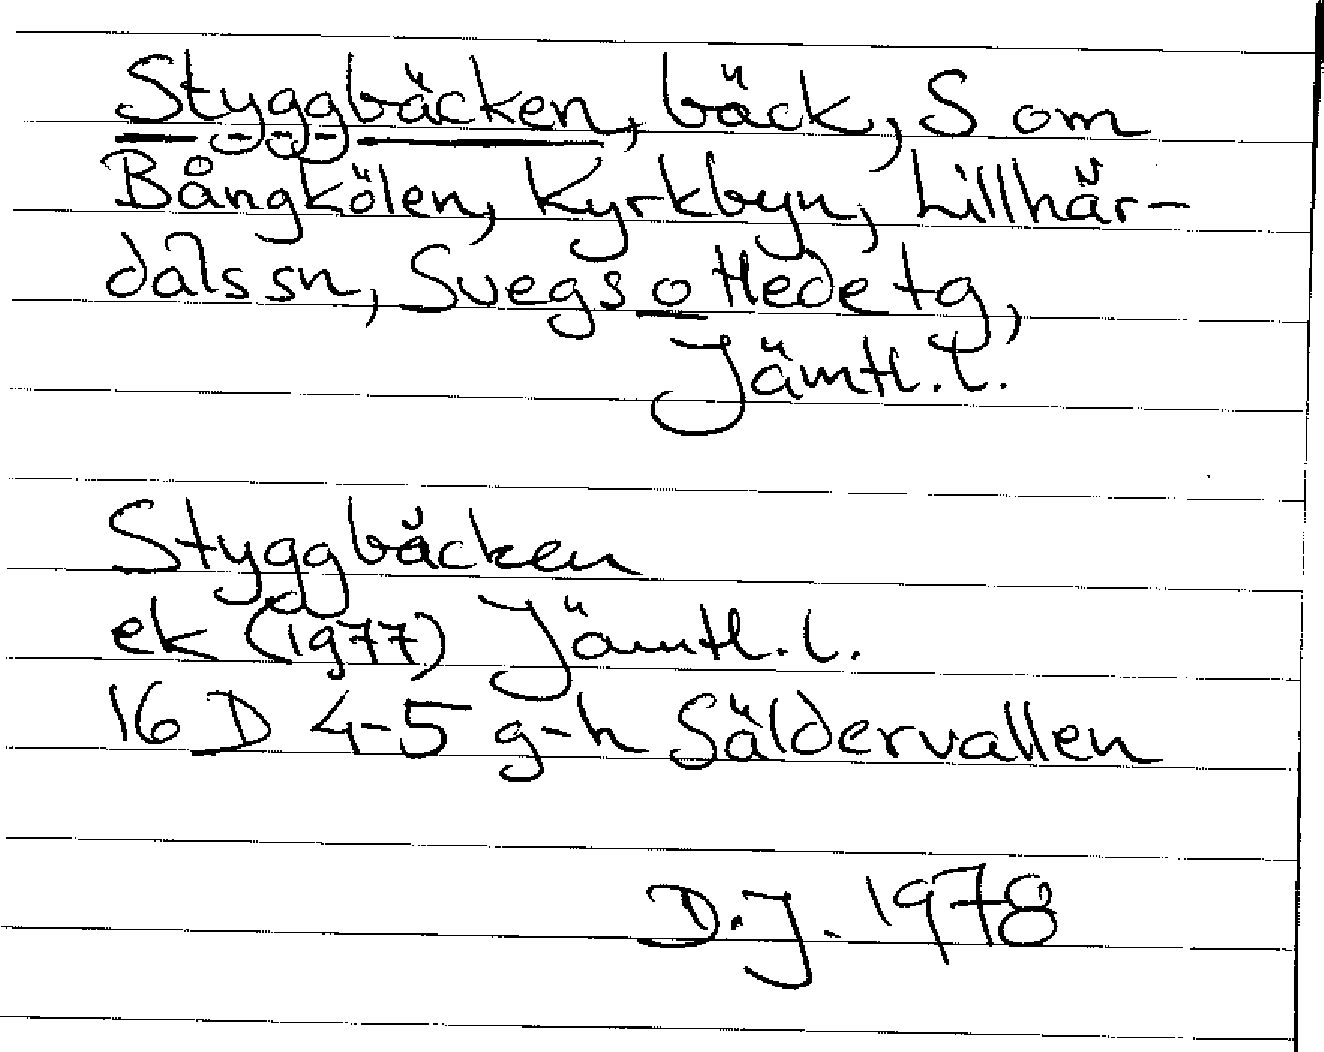 Styggbäcken, bäck, S om
Bångkölen, Kyrkbyn, Lillhär-
dals sn, Svegs o Hede tg,
Jämtl. l.
Styggbäcken
ek (1977) Jämtl. l.
16 D 4-5 g-h Säldervallen
D.J. 1978